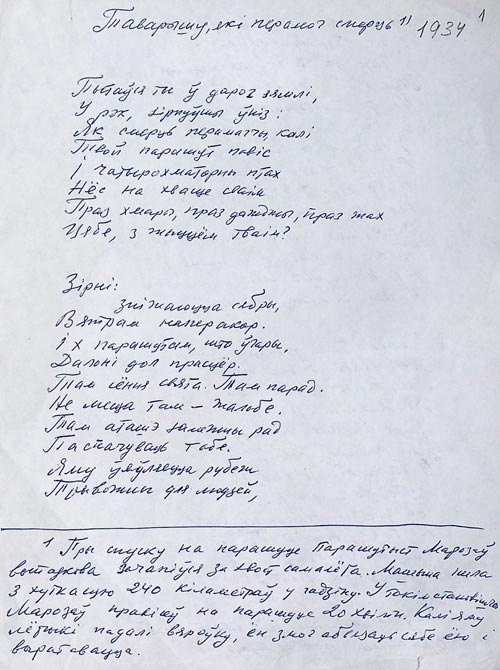 Таварышу, які перамог смерць 1) 1934 1
Пытаўся ты ў дарог зямлі,
У рэк, зірнуўшы ўніз:
Як смерць перамагчы, калі
Твой парашут повіс
І чатырохматорны птах
Нёс на хвасце сваім
Праз хмары, праз дажджы, праз жах
Цябе, з жыццём тваім?
Зірні:
зніжаюцца сябры,
Вятрам наперакор.
Іх парашутам, што ўгары,
Далоні дол працёр.
Там сёння свята. Там парад.
Не месца там – жальбе.
Там аташэ замежны рад
Паспачуваць табе.
Яму ўяўляецца рубеж
Трывожны для людзей,
1 Пры спуску на парашуце парашутыст Марозаў
выпадкова зачапіўся за хвост самалёта. Машына ішла
з хуткацю 240 кіламетраў у гадзіну. У такім становішчы
Марозаў правісеў на парашуце 20 хвілін. Калі яму
лётчыкі падалі вяроўку, ён змог абвязаць сябе ёю і
выратавацца.